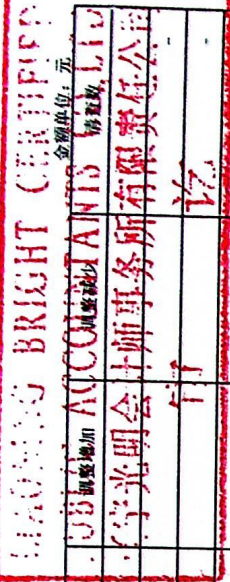 LIAONING BRIGHT CERTIFIED
金额单位：元
PUBLIC ACCOUNTANTS CO.,LTD
调整增加 调整减少 清查数
辽宁光明会计师事务所有限责任公司
- -